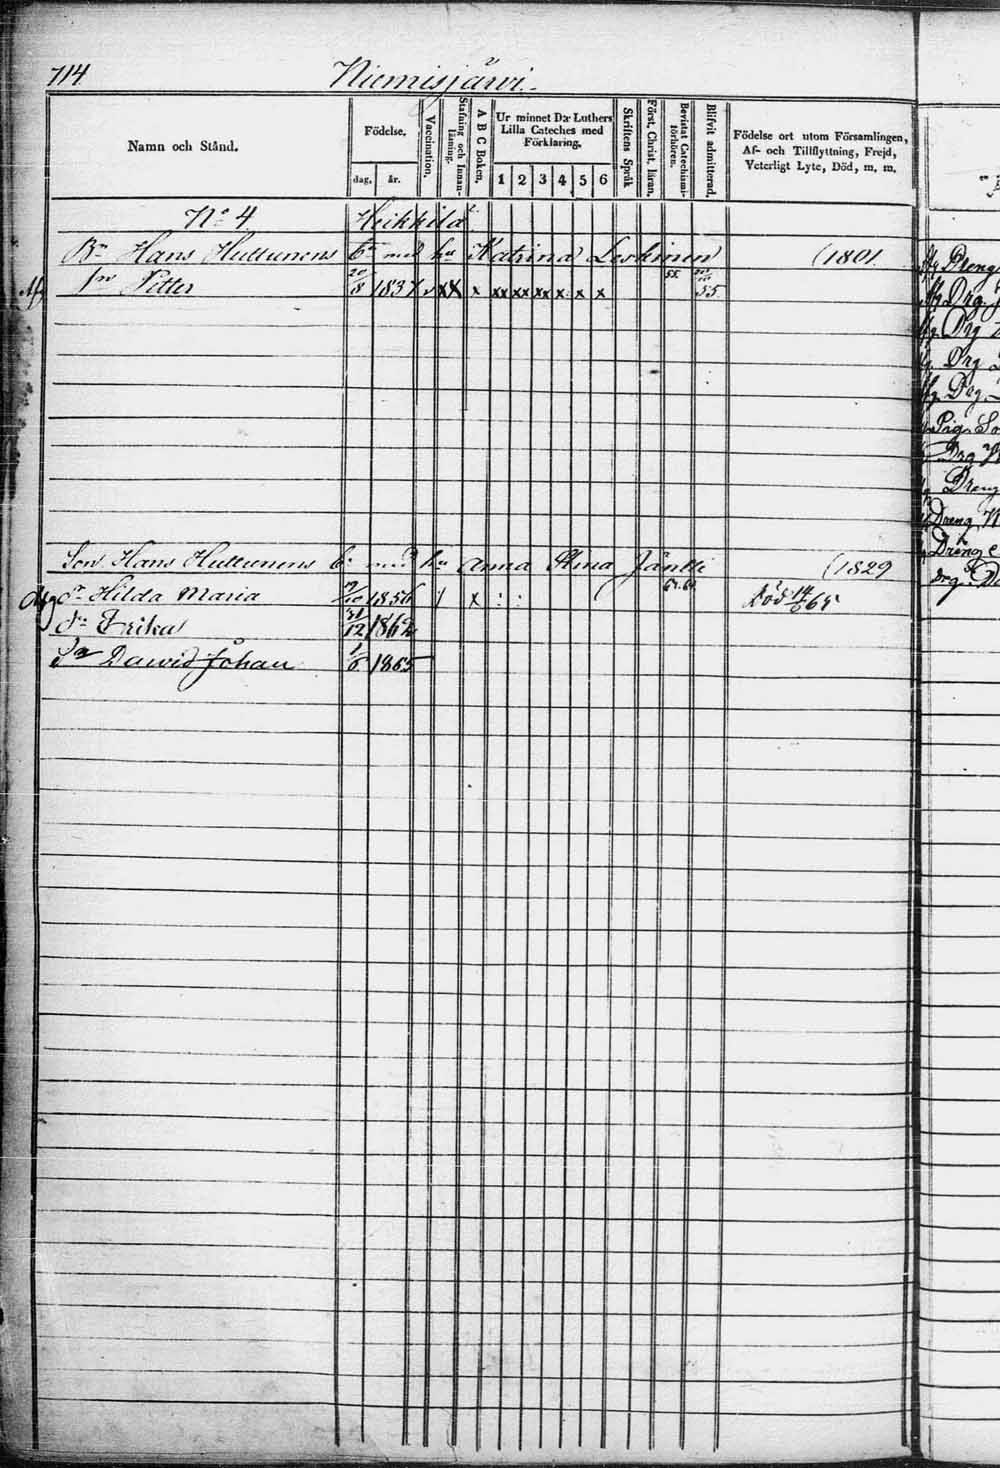 714 Niemisjärvi.
Namn och Stånd.
Födelse.
dag. år.
Vaccination.
Stafning och Innan-
läsning.
A B C Boken.
Ur minnet D:r Luthers
Lilla Cateches med
Förklaring.
1 2 3 4 5 6
Skriftens Språk
Först. Christ. läran.
Bevistat Catechismi-
förhören.
Blifvit admitterad.
Födelse ort utom Församlingen,
Af- och Tillflyttning, Frejd,
Veterligt Lyte, Död, m. m.
No 4 Heikkilä
Bn Hans Huttunens bn med hu Katrina Leskinen (1801.
sn Petter 20/8 1837 v xx x xx xx xx x x x 55 55
Son Hans Huttunens bn med hu Anna Stina Jäntti (1829
dr Hilda Maria 1856 / x : : död 14/6 65
dr Erika 31/12 1862
Sn Dawid Johan 1/6 1865
Dreng
Drg
Drg
Drg
Drg
Pig So
Drg
Dreng
Dreng
Dreng
Drg